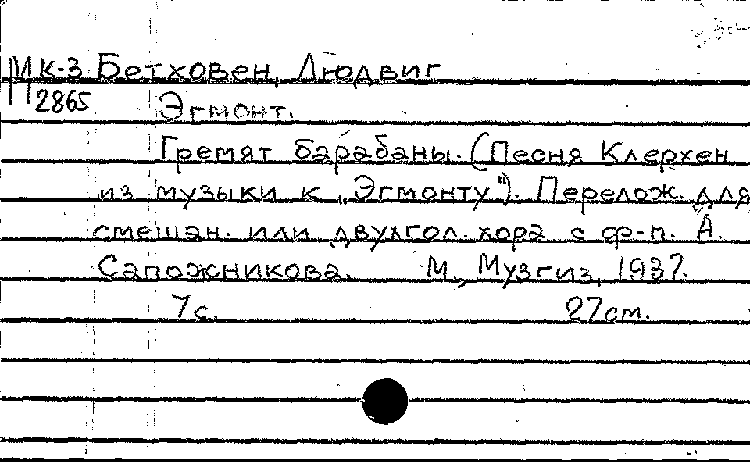 МК-3 Бетховен, Людвиг
2865 Эгмонт.
Гремят барабаны. (Песня Клерхен
из музыки к „Эгмонту"). Перелож. для
смешан. или двухгол. хора с ф-п. А.
Сапожникова. М., Музгиз, 1937.
7с. 27см.